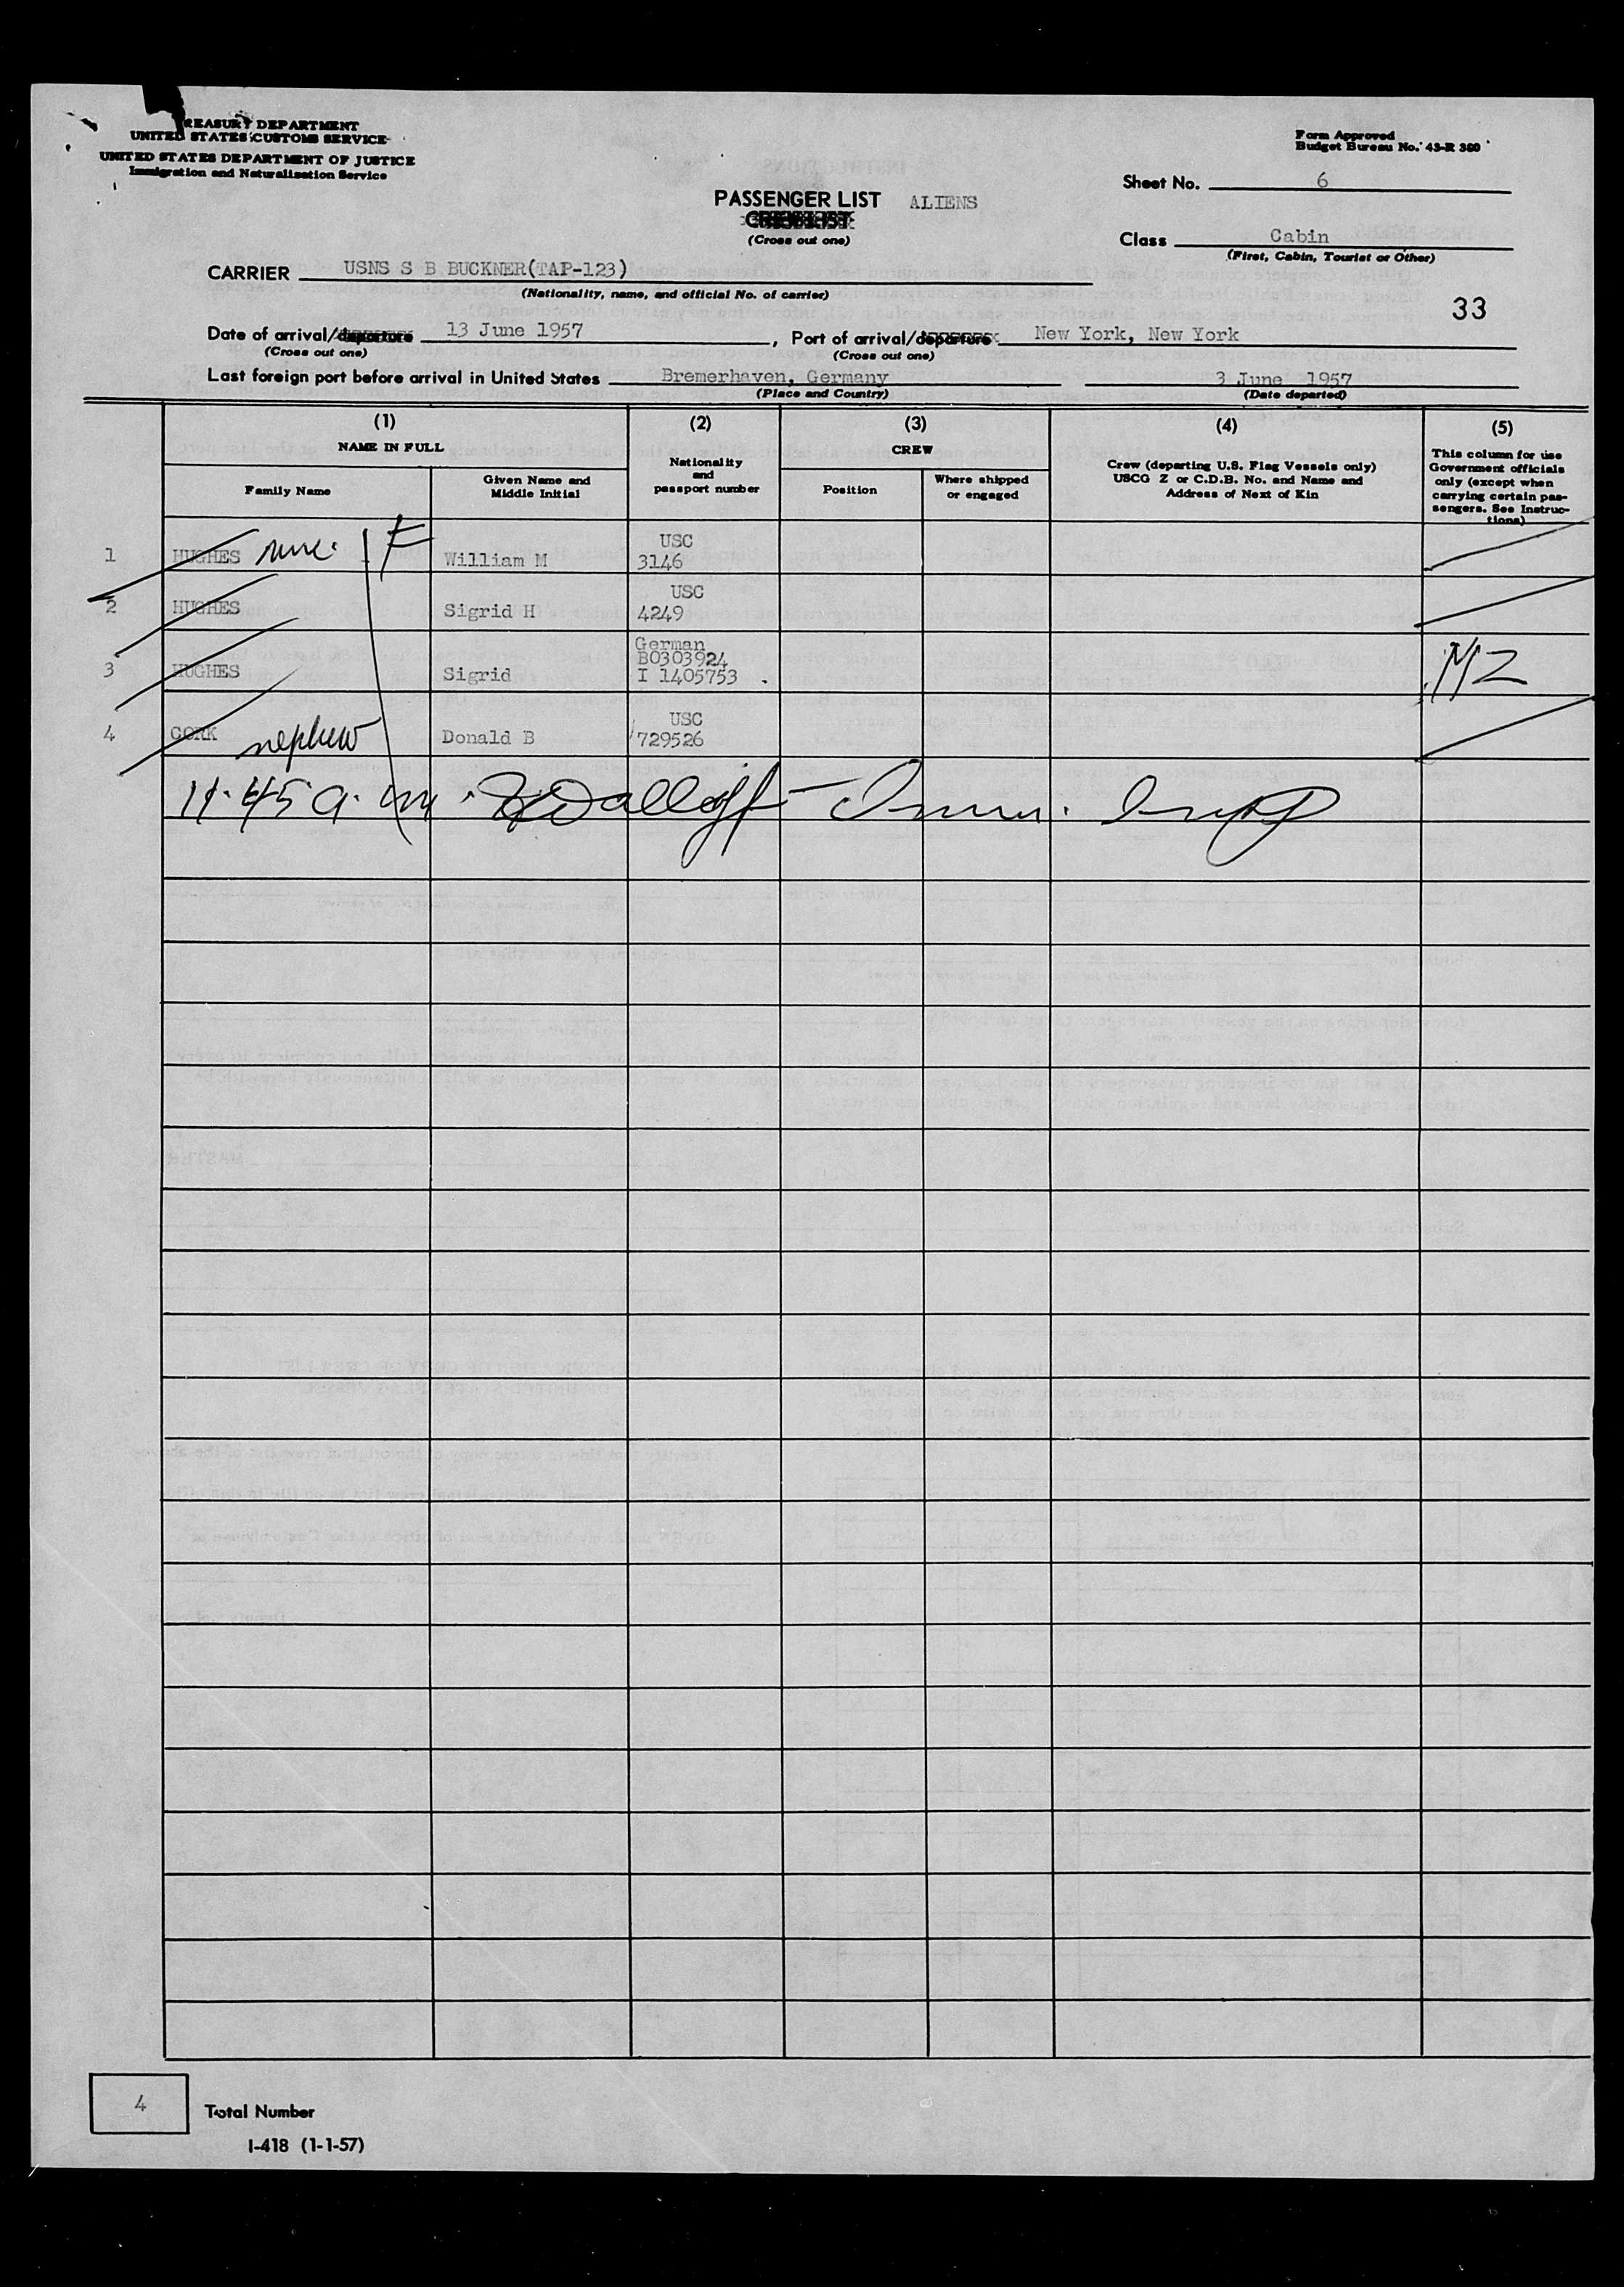 TREASURY DEPARTMENT
UNITED STATES CUSTOMS SERVICE
UNITED STATES DEPARTMENT OF JUSTICE
Immigration and Naturalization Service
Form Approved
Budget Bureau No. 43-R 380
Sheet No. 6
PASSENGER LIST ALIENS
CREW LIST
(Cross out one)
Class Cabin
(First, Cabin, Tourist or Other)
CARRIER USNS S B BUCKNER(TAP-123)
(Nationality, name, and official No. of carrier)
33
Date of arrival/departure 13 June 1957, Port of arrival/departure New York, New York
(Cross out one) (Cross out one)
Last foreign port before arrival in United States Bremerhaven, Germany 3 June 1957
(Place and Country) (Date departed)
(1) (2) (3) (4) (5)
NAME IN FULL
Family Name
Given Name and
Middle Initial
Nationality
and
passport number
CREW
Position
Where shipped
or engaged
Crew (departing U.S. Flag Vessels only)
USCG Z or C.D.B. No. and Name and
Address of Next of Kin
This column for use
Government officials
only (except when
carrying certain pas-
sengers. See Instruc-
tions)
USC
1 HUGHES William M 3146
USC
2 HUGHES Sigrid H 4249
German
B0303924
3 HUGHES Sigrid I 1405753 . M2
USC
4 CORK nephew Donald B 729526
11.45 a.m. Imm. Insp
4 Total Number
I-418 (1-1-57)